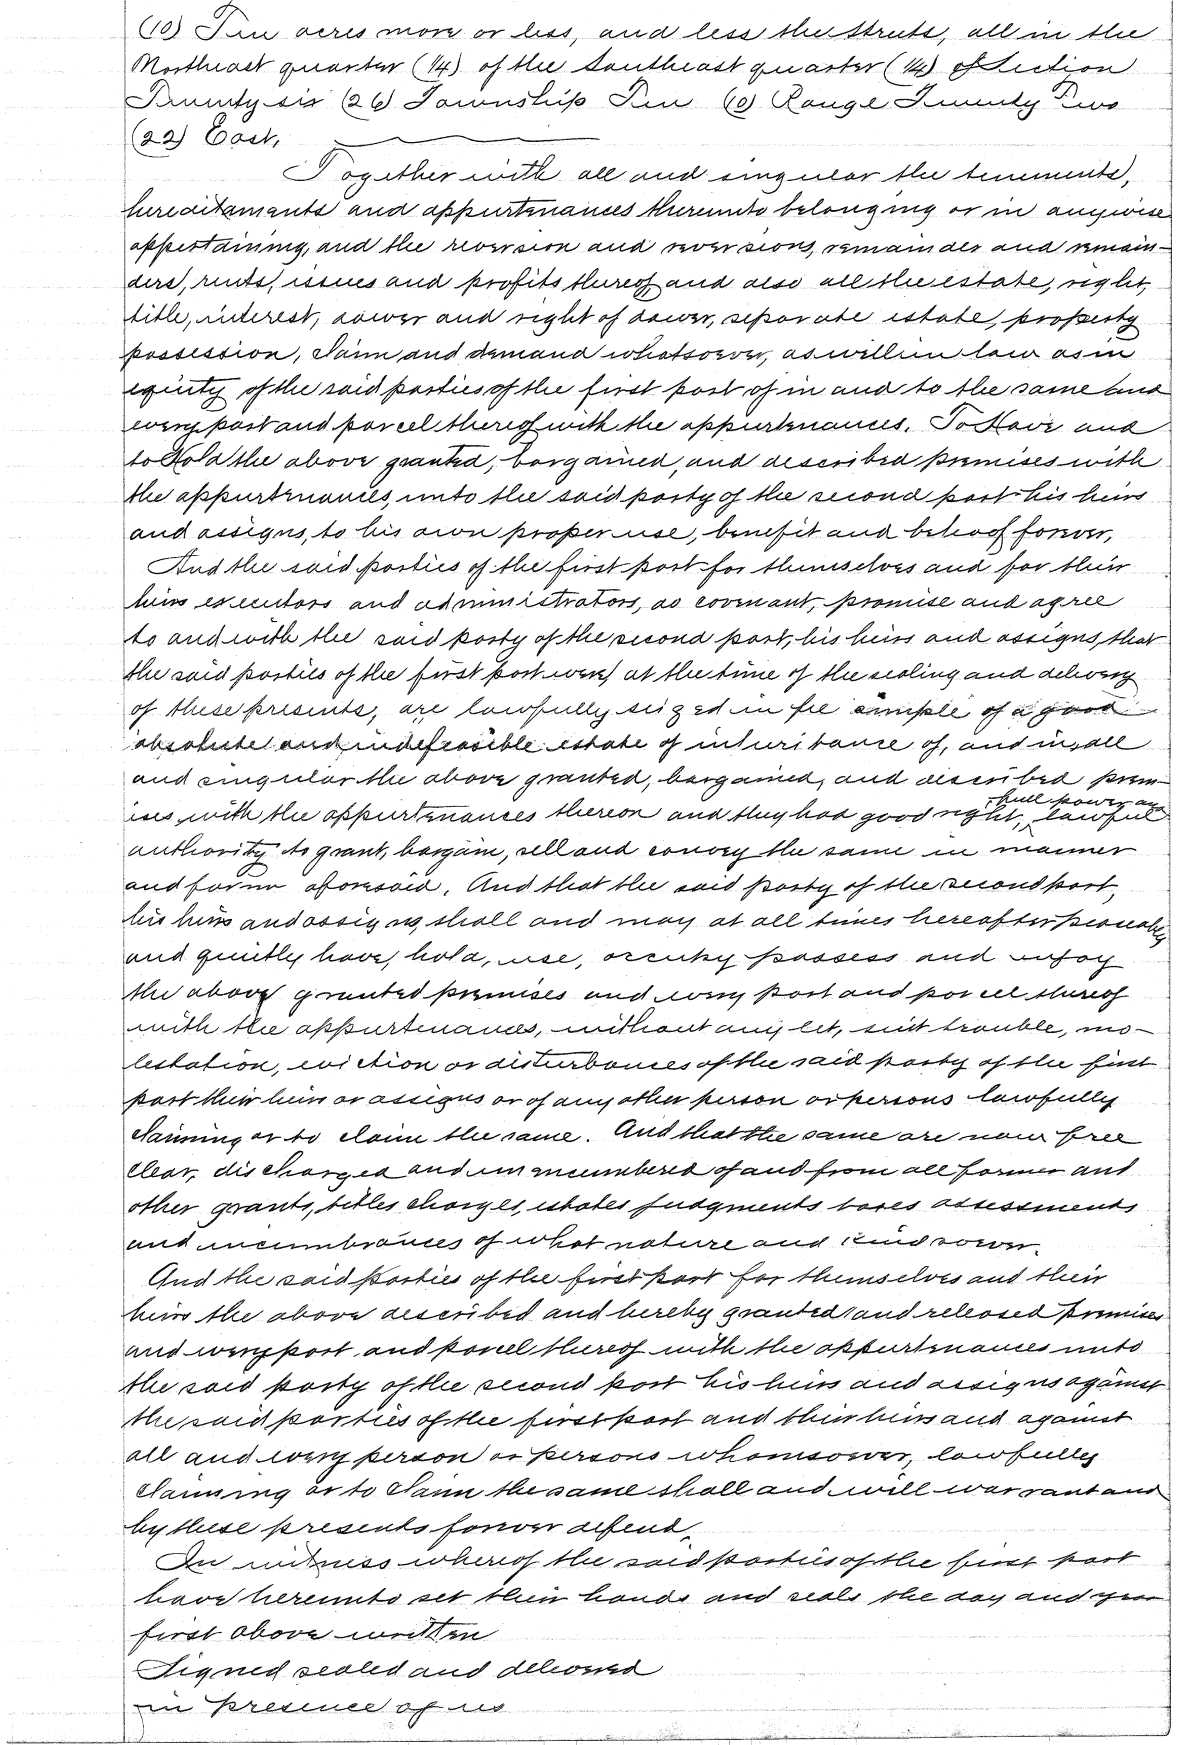 (10) Ten acres more or less, and less the Streets, all in the
Northeast quarter (1/4) of the Southeast quarter (1/4) of Section
Twenty six (26) Township Ten (10) Range Twenty Two
(22) East,
Together with all and singular the tenements,
hereditaments and appurtenances thereunto belonging or in anywise
appertaining, and the reversion and reversions, remainder and remain-
ders, rents, issues and profits thereof, and also all the estate, right,
title, interest, dower and right of dower, separate estate, property
possession, claim and demand whatsoever, as well in law as in
equity of the said parties of the first part of in and to the same and
every part and parcel thereof with the appurtenances. To Have and
to Hold the above granted, bargained, and described premises with
the appurtenances, unto the said party of the second part his heirs
and assigns, to his own proper use, benefit and behoof forever,
And the said parties of the first part for themselves and for their
heirs executors and administrators, do covenant, promise and agree
to and with the said party of the second part, his heirs and assigns, that
the said parties of the first part were, at the time of the sealing and delivery
of these presents, are lawfully seized in fee simple of a good
absolute and indefeasible estate of inheritance of, and in, all
and singular the above granted, bargained, and described prem-
ises, with the appurtenances thereon and they had good right, full power and lawful
authority to grant, bargain, sell and convey the same in manner
and form aforesaid. And that the said party of the second part,
his heirs and assigns, shall and may at all times hereafter peaceably
and quietly have, hold, use, occupy possess and enjoy
the above granted premises and every part and parcel thereof
with the appurtenances, without any let, suit trouble, mo-
lestation, eviction or disturbances of the said party of the first
part their heirs or assigns or of any other person or persons lawfully
claiming or to claim the same. And that the same are now free
clear, discharged and unincumbered of and from all former and
other grants, titles charges, estates judgments taxes assessments
and incumbrances of what nature and kind soever.
And the said parties of the first part for themselves and their
heirs the above described and hereby granted and released premises
and every part and parcel thereof with the appurtenances unto
the said party of the second part his heirs and assigns against
the said parties of the first part and their heirs and against
all and every person or persons whomsoever, lawfully
claiming or to claim the same shall and will warrant and
by these presents forever defend.
In witness whereof the said parties of the first part
have hereunto set their hands and seals the day and year
first above written
Signed sealed and delivered
in presence of us